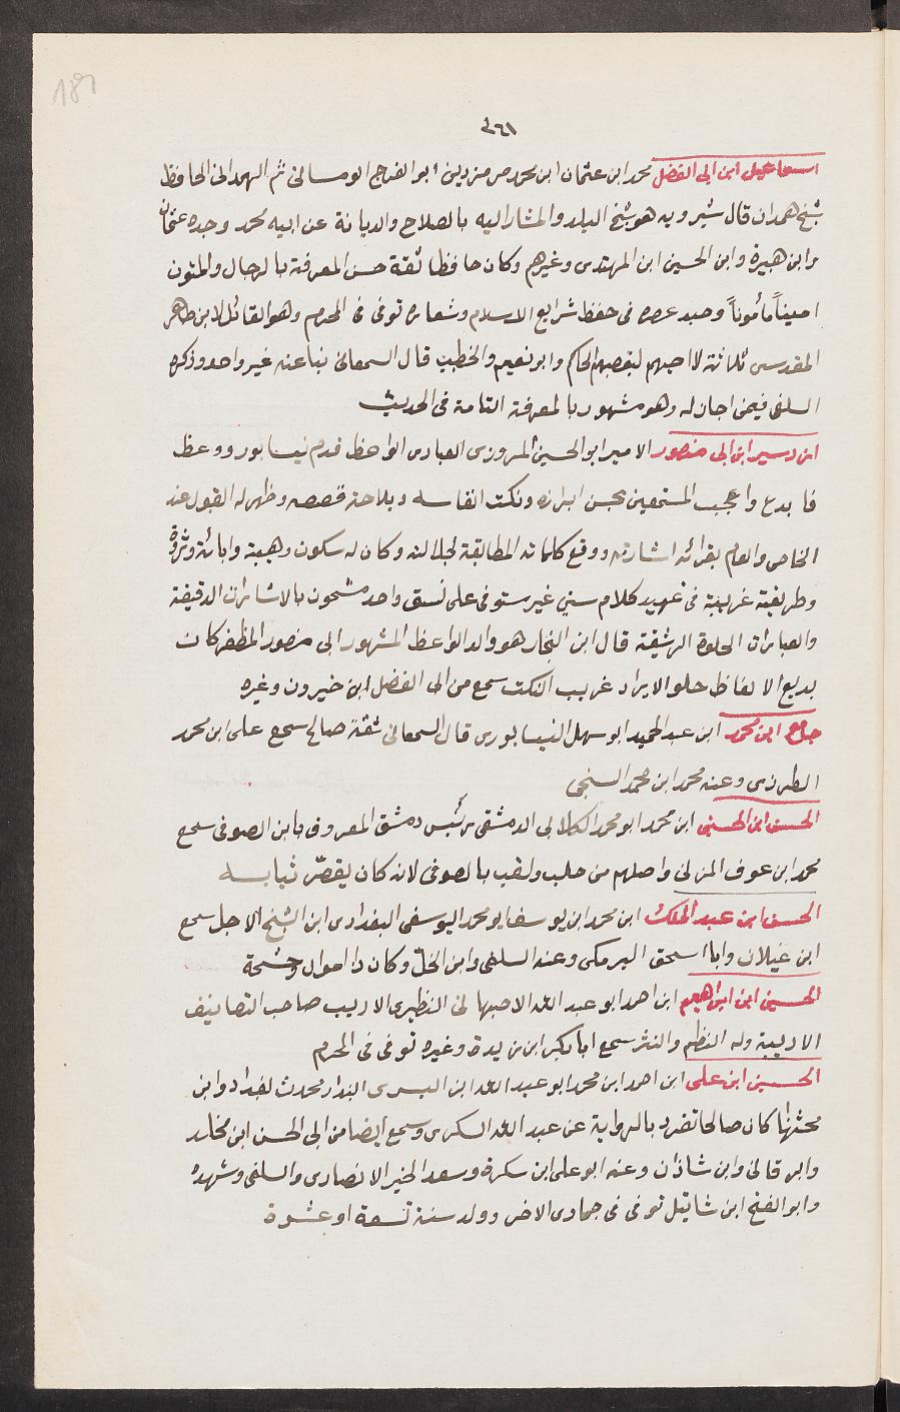 189
اسماعيل ابن ابى الفضل محمد ابن عثمان ابن محمد من مزدين ابو الفرج القومسانى ثم الهمدانى الحافظ
شيخ همدان قال شيرويه هو شيخ البلد والمشار اليه بالصلاح والديانة عن ابيه محمد وجده عثمان
وابن هبيرة وابن الحسين ابن المهتدى وغيرهم وكان حافظا ثقة حسن المعرفة بالرجال والمتون
اميناً مأموناً وحيد عصره فى حفظ شرايع الاسلام وشعاره توفى فى المحرم وهو القائل لابن طاهر
المقدسى ثلاثة لا احبهم لتعصبهم الحاكم وابو نعيم والخطيب قال السمعانى نبا عنه غير واحد وذكره
السلفى فيمن اجاز له وهو مشهور بالمعرفة التامة فى الحديث
اردسير ابن ابى منصور الامير ابو الحسين المروزى العبادى الواعظ قدم نيسابور ووعظ
فابدع واعجب المستمعين بحسن ايراده ونكت انفاسه وملاحة قصصه وظهر له القبول عند
الخاص والعام بقرائه اشارته ووقع كلماته المطابقة لجلالته وكان له سكون وهيبة واباتة وثروة
وطريقة غريبة فى تمهيد كلام سنى غير مستوفى على نسق واحد مشحون بالاشارات الدقيقة
والعبارات الحلوة الرشيقة قال ابن النجار هو والد الواعظ المشهور ابى منصور المظفر كان
بديع الالفاظ حلو الايراد غريب النكت سمع من ابى الفضل ابن خيرون وغيره
جامع ابن محمد ابن عبد الحميد ابو سهل النيسابورى قال السمعانى ثقة صالح سمع على ابن محمد
الطرازى وعنه محمد ابن محمد السنجى
الحسن ابن الحسين ابن محمد ابو محمد الكلابى الدمشقى رئيس دمشق المعروف بابن الصوفى سمع
محمد ابن عوف المزنى واصلهم من حلب ولقب بالصوفى لانه كان يقصّر ثيابه
الحسن ابن عبد الملك ابن محمد ابن يوسف ابو محمد اليوسفى البغدادى ابن الشيخ الاجل سمع
ابن غيلان وابا اسحق البرمكى وعنه السلفى وابن الخلّ وكان ذا اموال وحشمة
الحسين ابن ابراهيم ابن احمد ابو عبد الله الاصبهانى النطنزى الاديب صاحب التصانيف
الادبية وله النظم والنثر سمع ابا بكر ابن ريدة وغيره توفى فى المحرم
الحسين ابن على ابن احمد ابن محمد ابو عبد الله ابن البسرى البندار محدث بغداد وابن
محدثها كان صالحا تفرد بالرواية عن عبد الله السكرى وسمع ايضا من ابى الحسن ابن مخلد
والبرقانى وابن شاذان وعنه ابو على ابن سكرة وسعد الخير الانصارى والسلفى وشهده
وابو الفتح ابن شاتيل توفى فى جمادى الاخر وولد سنة تسعة او عشرة